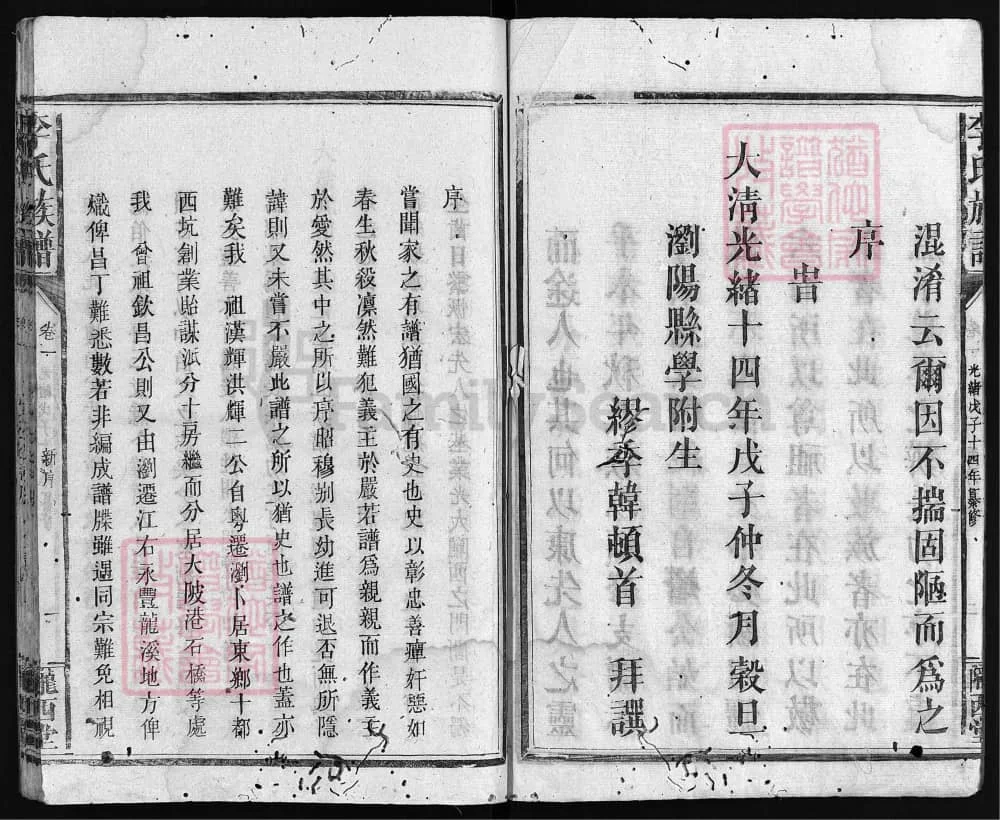 混淆云爾因不揣固陋而為之
序
旹
大清光緒十四年戊子仲冬月穀旦
瀏陽縣學附生
繆季韓頓首 拜譔
李氏族譜
卷一
光緒戊子十四年纂修
隴西堂
序
嘗聞家之有譜猶國之有史也史以彰忠善癉奸惡如
春生秋殺凛然難犯義主於嚴若譜為親親而作義主
於愛然其中之所以序昭穆别長幼進可退否無所隱
諱則又未嘗不嚴此譜之所以猶史也譜之作也蓋亦
難矣我 祖漢輝洪輝二公自粵遷瀏卜居東鄉十都
西坑創業貽謀派分十房繼而分居大陂港石橋等處
我 曾祖欽昌公則又由瀏遷江右永豐龍溪地方俾
熾俾昌丁難悉數若非編成譜牒雖遇同宗難免相視
李氏族譜
卷一
新序
一
隴西堂
FamilySearch